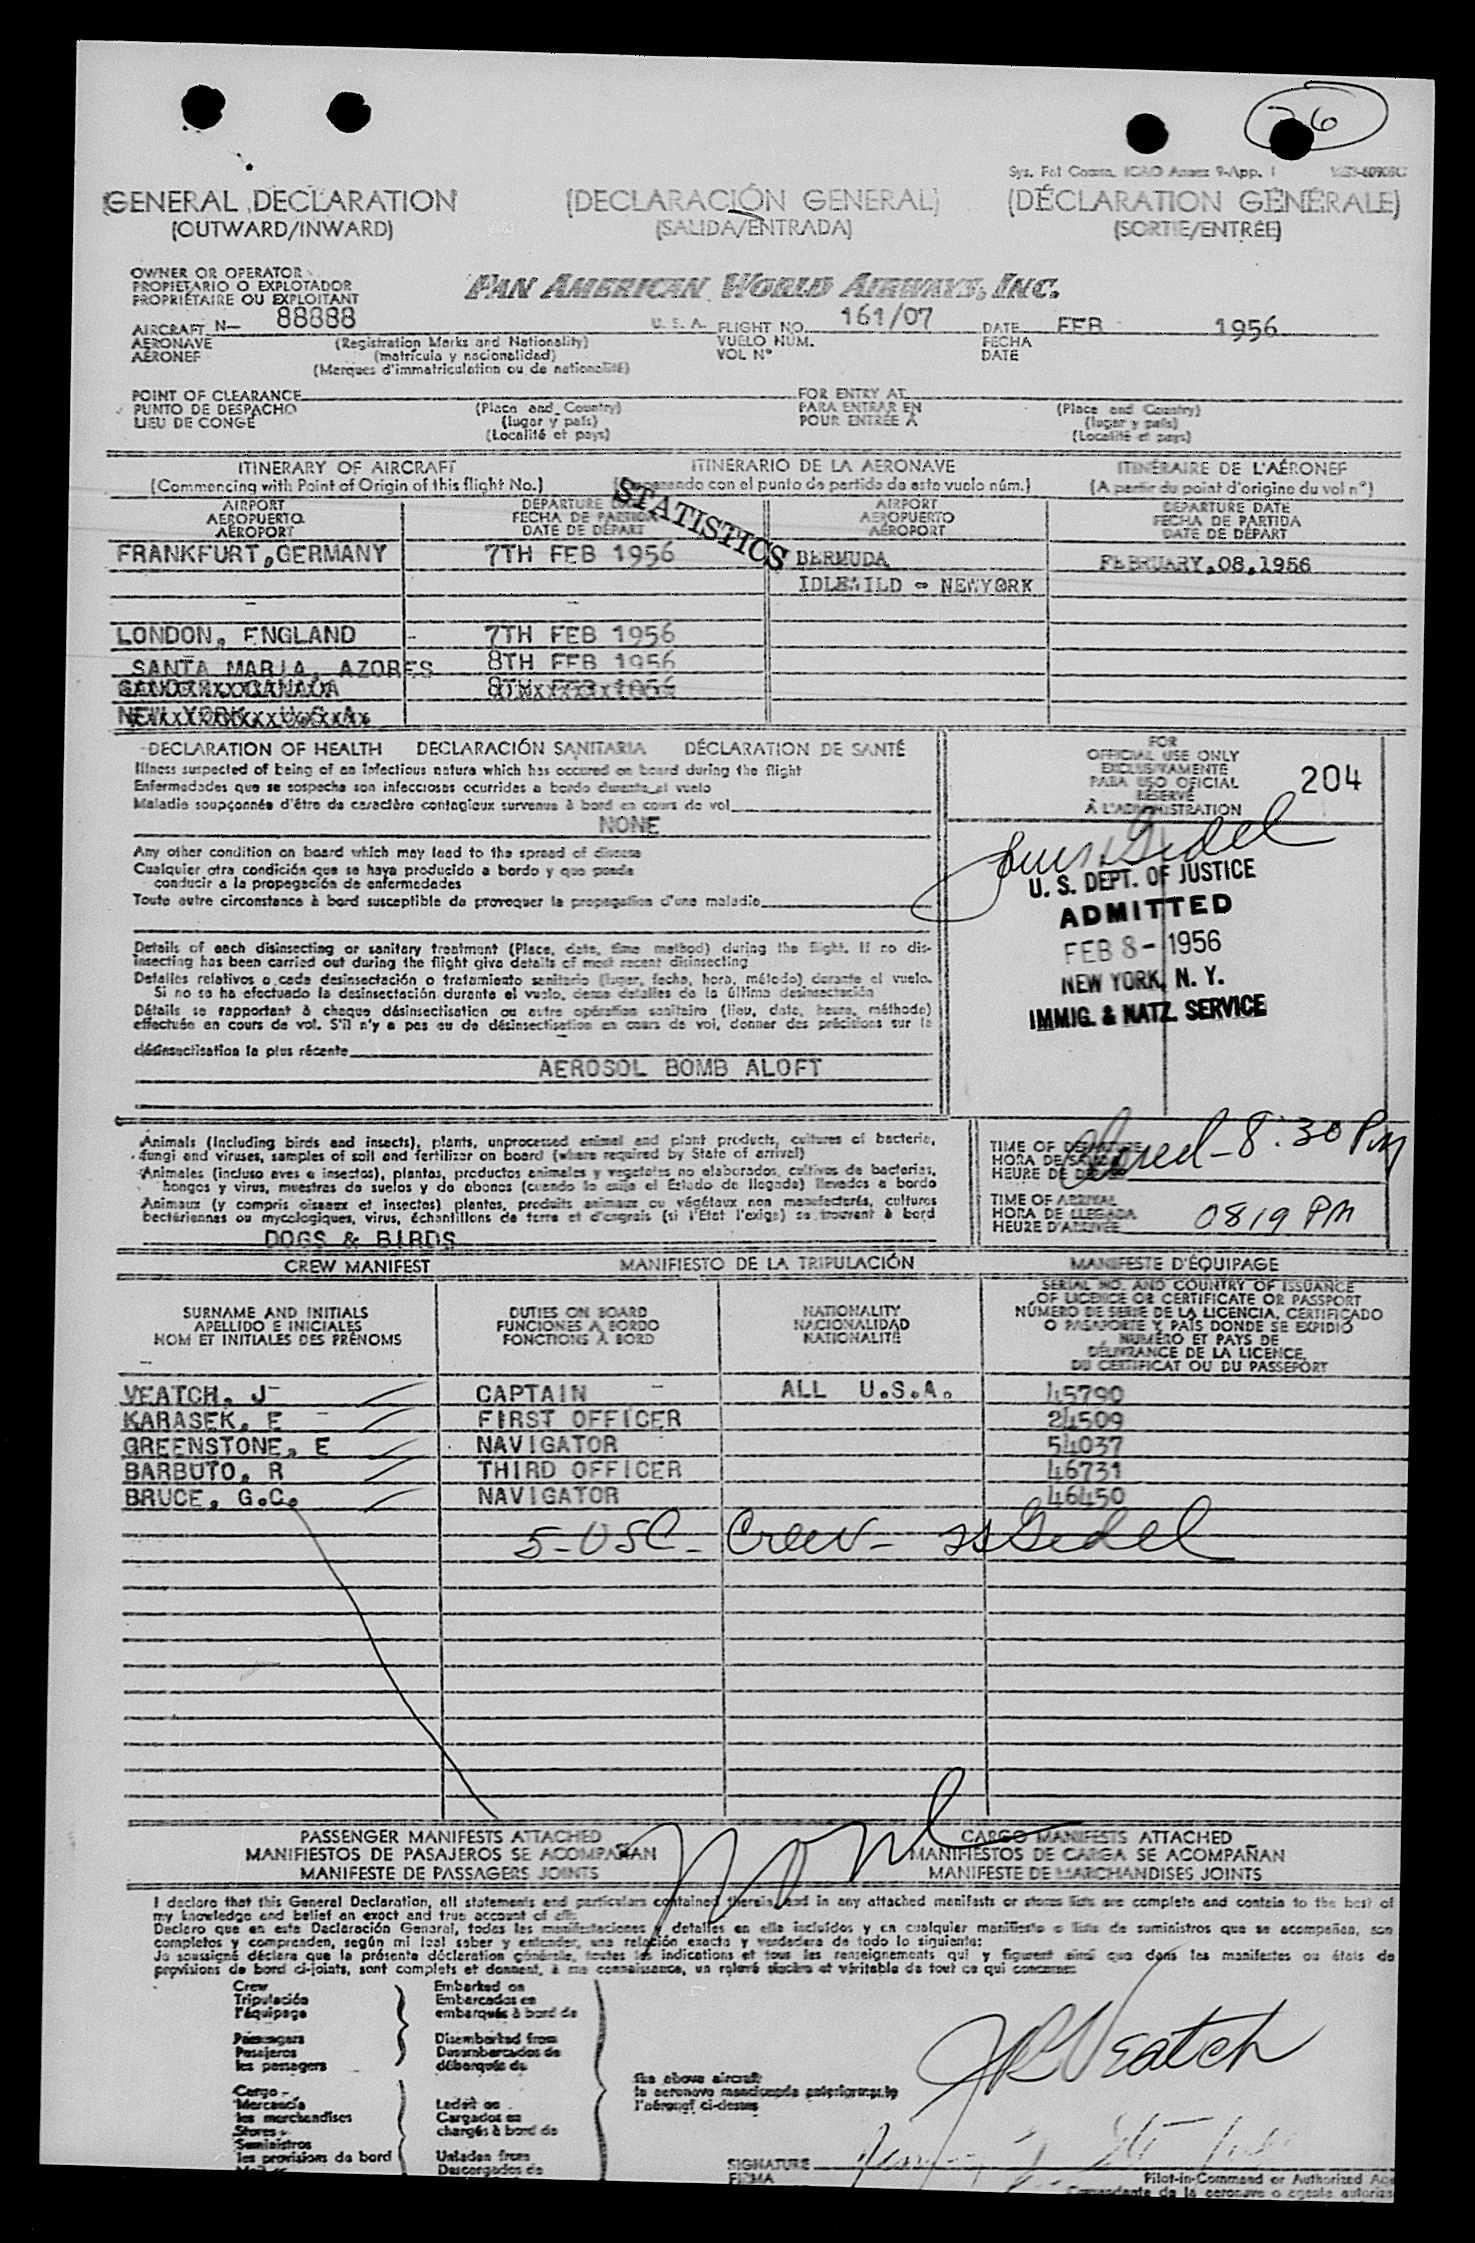 26
Sys. Fol Comm. ICAO Annex 9-App. 1
GENERAL DECLARATION (DECLARACIÓN GENERAL) (DÉCLARATION GÉNÉRALE)
(OUTWARD/INWARD) (SALIDA/ENTRADA) (SORTIE/ENTRÉE)
OWNER OR OPERATOR
PROPIETARIO O EXPLOTADOR
PROPRIÉTAIRE OU EXPLOITANT
PAN AMERICAN WORLD AIRWAYS, INC.
AIRCRAFT N— 88888 U. S. A. FLIGHT NO. 161/07 DATE FEB 1956
AERONAVE (Registration Marks and Nationality) VUELO NÚM. FECHA
AÉRONEF (matrícula y nacionalidad) VOL Nº DATE
(Marques d'immatriculation ou de nationalité)
POINT OF CLEARANCE FOR ENTRY AT
PUNTO DE DESPACHO (Place and Country) PARA ENTRAR EN (Place and Country)
LIEU DE CONGÉ (lugar y país) POUR ENTRÉE À (lugar y país)
(Localité et pays) (Localité et pays)
ITINERARY OF AIRCRAFT ITINERARIO DE LA AERONAVE ITINÉRAIRE DE L'AÉRONEF
(Commencing with Point of Origin of this flight No.) con el punto de partida de este vuelo núm.) (A partir du point d'origine du vol nº)
STATISTICS
AIRPORT DEPARTURE AIRPORT DEPARTURE DATE
AEROPUERTO FECHA DE PARTIDA AEROPUERTO FECHA DE PARTIDA
AÉROPORT DATE DE DÉPART AÉROPORT DATE DE DÉPART
FRANKFURT, GERMANY 7TH FEB 1956 BERMUDA FEBRUARY, 08, 1956
IDLEWILD - NEWYORK
LONDON, ENGLAND 7TH FEB 1956
SANTA MARIA, AZORES 8TH FEB 1956
DECLARATION OF HEALTH DECLARACIÓN SANITARIA DÉCLARATION DE SANTÉ
Illness suspected of being of an infectious nature which has occured on board during the flight
Enfermedades que se sospecha son infecciosas ocurridas a bordo durante el vuelo
Maladie soupçonnée d'être de caractère contagieux survenue à bord en cours de vol
NONE
Any other condition on board which may lead to the spread of disease
Cualquier otra condición que se haya producido a bordo y que puede
conducir a la propagación de enfermedades
Toute autre circonstance à bord susceptible de provoquer la propagation d'une maladie
Details of each disinsecting or sanitary treatment (Place, date, time method) during the flight. If no dis-
insecting has been carried out during the flight give details of most recent disinsecting
Detalles relativos a cada desinsectación o tratamiento sanitario (lugar, fecha, hora, método) durante el vuelo.
Si no se ha efectuado la desinsectación durante el vuelo, dense detalles de la última desinsectación
Détails se rapportant à chaque désinsectisation ou autre opération sanitaire (lieu, date, heure, méthode)
effectuée en cours de vol. S'il n'y a pas eu de désinsectisation en cours de vol, donner des précisions sur la
désinsectisation la plus récente
AEROSOL BOMB ALOFT
FOR
OFFICIAL USE ONLY
EXCLUSIVAMENTE
PARA USO OFICIAL
RÉSERVÉ
À L'ADMINISTRATION
204
U. S. DEPT. OF JUSTICE
ADMITTED
FEB 8 - 1956
NEW YORK, N. Y.
IMMIG. & NATZ. SERVICE
Animals (including birds and insects), plants, unprocessed animal and plant products, cultures of bacteria,
fungi and viruses, samples of soil and fertilizer on board (where required by State of arrival)
Animales (incluso aves e insectos), plantas, productos animales y vegetales no elaborados, cultivos de bacterias,
hongos y virus, muestras de suelos y de abonos (cuando lo exija el Estado de llegada) llevados a bordo
Animaux (y compris oiseaux et insectes) plantes, produits animaux ou végétaux non manufacturés, cultures
bactériennes ou mycologiques, virus, échantillons de terre et d'engrais (si l'Etat l'exige) se trouvant à bord
DOGS & BIRDS
TIME OF DEPARTURE
HORA DE
HEURE DE
8:30 PM
TIME OF ARRIVAL
HORA DE LLEGADA
HEURE D'ARRIVÉE
0819 PM
CREW MANIFEST MANIFIESTO DE LA TRIPULACIÓN MANIFESTE D'ÉQUIPAGE
SURNAME AND INITIALS
APELLIDO E INICIALES
NOM ET INITIALES DES PRÉNOMS
DUTIES ON BOARD
FUNCIONES A BORDO
FONCTIONS À BORD
NATIONALITY
NACIONALIDAD
NATIONALITÉ
SERIAL NO. AND COUNTRY OF ISSUANCE
OF LICENCE OR CERTIFICATE OR PASSPORT
NÚMERO DE SERIE DE LA LICENCIA, CERTIFICADO
O PASAPORTE Y PAÍS DONDE SE EXPIDIÓ
NUMÉRO ET PAYS DE
DÉLIVRANCE DE LA LICENCE,
DU CERTIFICAT OU DU PASSEPORT
VEATCH, J CAPTAIN ALL U.S.A. 45790
KARASEK, E FIRST OFFICER 24509
GREENSTONE, E NAVIGATOR 54037
BARBUTO, R THIRD OFFICER 46731
BRUCE, G.C. NAVIGATOR 46450
5-USC- Crew- Gedel
PASSENGER MANIFESTS ATTACHED CARGO MANIFESTS ATTACHED
MANIFIESTOS DE PASAJEROS SE ACOMPAÑAN MANIFIESTOS DE CARGA SE ACOMPAÑAN
MANIFESTE DE PASSAGERS JOINTS MANIFESTE DE MARCHANDISES JOINTS
I declare that this General Declaration, all statements and particulars contained therein, and in any attached manifests or stores lists are complete and contain to the best of
my knowledge and belief an exact and true account of all:
Declaro que en esta Declaración General, todas las manifestaciones y detalles en ella incluídos y en cualquier manifiesto o lista de suministros que se acompañan, son
completos y comprenden, según mi leal saber y entender, una relación exacta y verdadera de todo lo siguiente:
Je soussigné déclare que la présente déclaration générale, toutes les indications et tous les renseignements qui y figurent ainsi que dans les manifestes ou états de
provisions de bord ci-joints, sont complets et donnent, à ma connaissance, un relevé sincère et véritable de tout ce qui concerne:
Crew
Tripulación
l'équipage
Passengers
Pasajeros
les passagers
Cargo
Mercancía
les marchandises
Stores
Suministros
les provisions de bord
Embarked on
Embarcados en
embarqués à bord de
Disembarked from
Desembarcados de
débarqués de
Laded on
Cargados en
chargés à bord de
Unladen from
Descargados de
the above aircraft
la aeronave mencionada anteriormente
l'aéronef ci-dessus
JR Veatch
SIGNATURE
FIRMA
Pilot-in-Command or Authorized
Comandante de la aeronave o agente